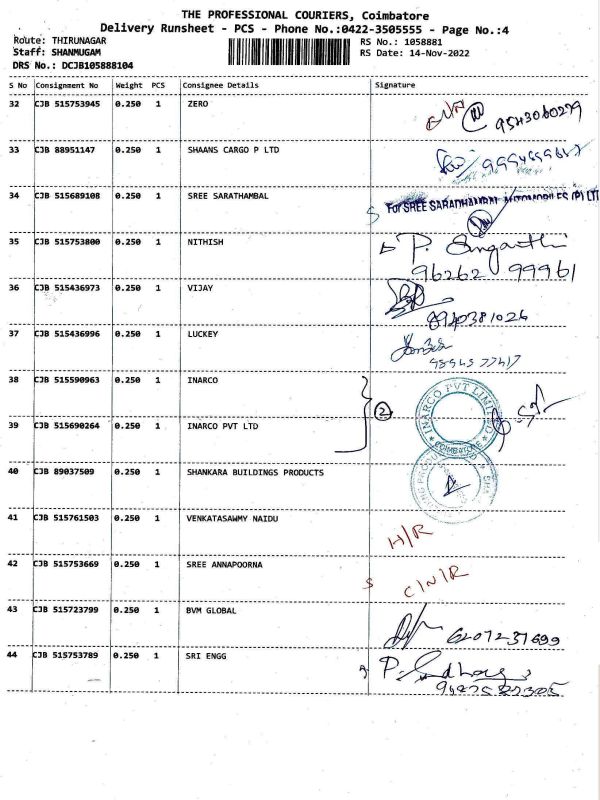 THE PROFESSIONAL COURIERS, Coimbatore
Delivery Runsheet - PCS - Phone No.:0422-3505555 - Page No.:4
Route: THIRUNAGAR RS No.: 1058881
Staff: SHANMUGAM RS Date: 14-Nov-2022
DRS No.: DCJB105888104
S No Consignment No Weight PCS Consignee Details Signature
32 CJB 515753945 0.250 1 ZERO
33 CJB 88951147 0.250 1 SHAANS CARGO P LTD
34 CJB 515689108 0.250 1 SREE SARATHAMBAL
For SREE SARATHAMBAL AUTOMOBILES (P) LT
35 CJB 515753800 0.250 1 NITHISH
96262 99961
36 CJB 515436973 0.250 1 VIJAY
37 CJB 515436996 0.250 1 LUCKEY
38 CJB 515590963 0.250 1 INARCO
2
INARCO PVT LIMITED
COIMBATORE
39 CJB 515690264 0.250 1 INARCO PVT LTD
40 CJB 89037509 0.250 1 SHANKARA BUILDINGS PRODUCTS
41 CJB 515761503 0.250 1 VENKATASAWMY NAIDU
H/R
42 CJB 515753669 0.250 1 SREE ANNAPOORNA
S C/N/R
43 CJB 515723799 0.250 1 BVM GLOBAL
6207237699
44 CJB 515753789 0.250 1 SRI ENGG